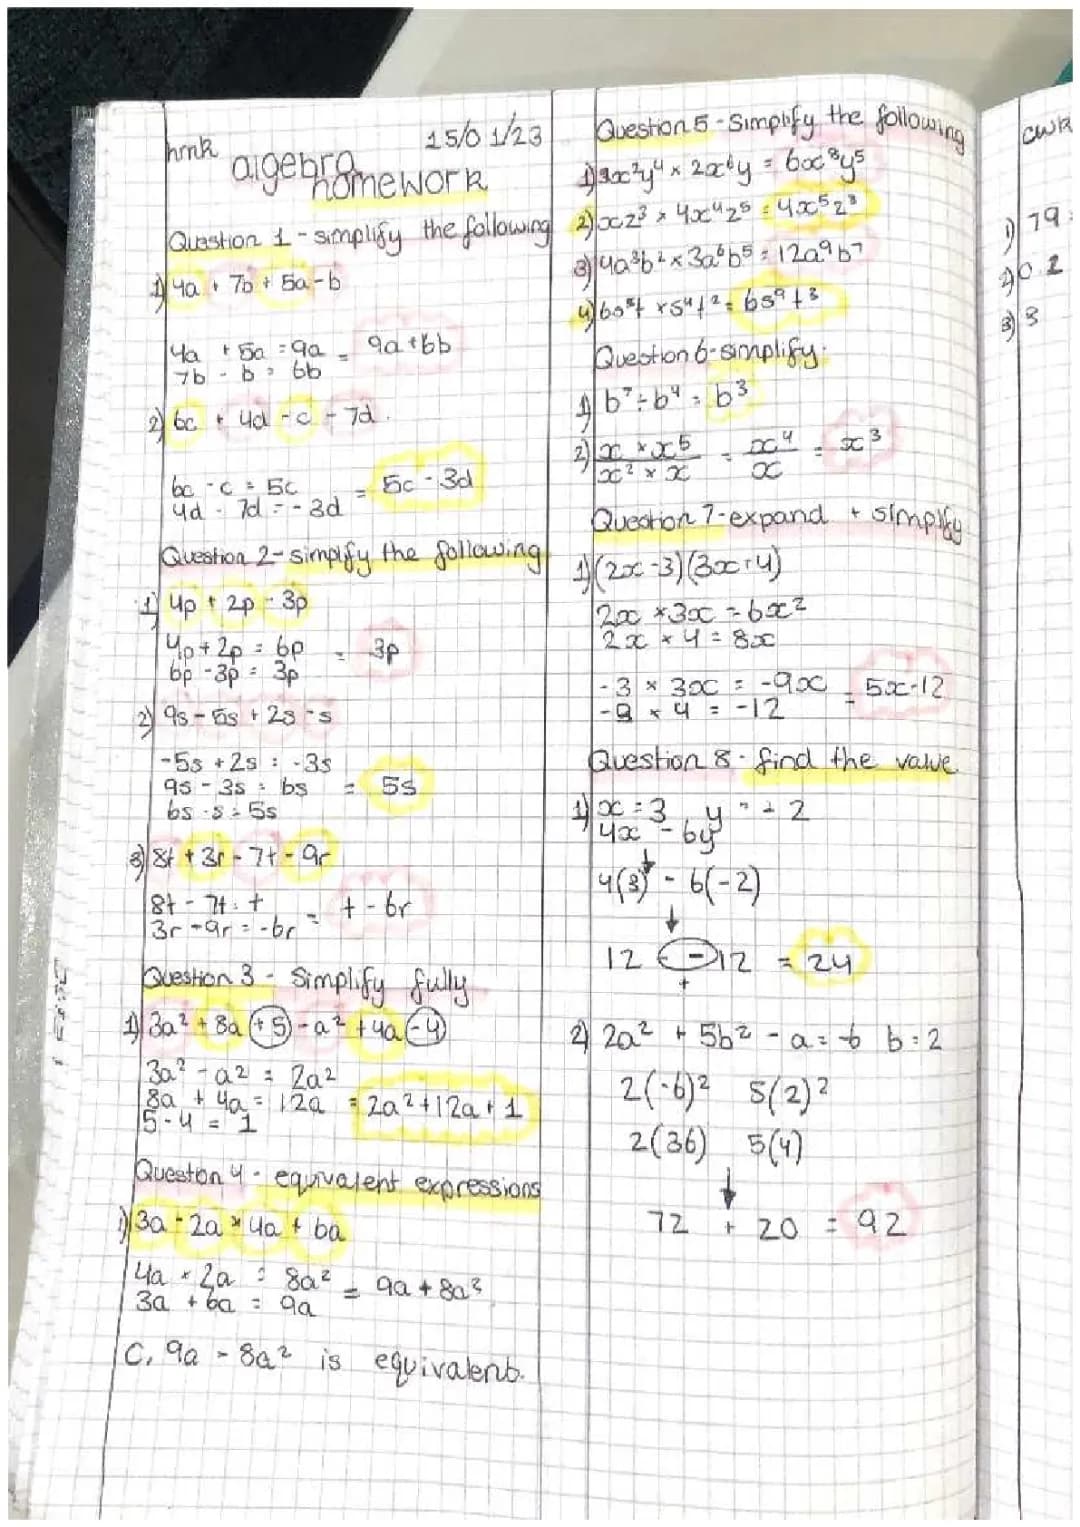 hmk 15/01/23
algebra
homework
Question 1 - simplify the following
1) 4a + 7b + 5a - b
4a + 5a = 9a = 9a + 6b
7b - b = 6b
2) 6c + 4d - c - 7d
6c - c = 5c = 5c - 3d
4d - 7d = - 3d
Question 2 - simplify the following
1) 4p + 2p - 3p
4p + 2p = 6p = 3p
6p - 3p = 3p
2) 9s - 5s + 2s - s
-5s + 2s = -3s
9s - 3s = 6s = 5s
6s - s = 5s
3) 8t + 3r - 7t - 9r
8t - 7t = t = t - 6r
3r - 9r = -6r
Question 3 - Simplify fully
1) 3a² + 8a + 5 - a² + 4a - 4
3a² - a² = 2a²
8a + 4a = 12a = 2a² + 12a + 1
5 - 4 = 1
Question 4 - equivalent expressions
1) 3a - 2a × 4a + 6a
4a × 2a = 8a² = 9a + 8a²
3a + 6a = 9a
C, 9a - 8a² is equivalent.
Question 5 - Simplify the following
1) 3x²y⁴ × 2x⁶y = 6x⁸y⁵
2) xz³ × 4x⁴z⁵ = 4x⁵z⁸
3) 4a³b² × 3a⁶b⁵ = 12a⁹b⁷
4) 6s⁵t × s⁴t² = 6s⁹t³
Question 6 - simplify.
1) b⁷ ÷ b⁴ = b³
2) x × x⁵ = x⁴ = x³
x² × x x
Question 7 - expand + simplify
1) (2x - 3)(3x + 4)
2x × 3x = 6x²
2x × 4 = 8x
-3 × 3x = -9x = 5x - 12
-3 × 4 = -12
Question 8 - find the value
1) x = 3 y = - 2
4x - 6y
4(3) - 6(-2)
12 - - 12 = 24
+
2) 2a² + 5b² - a = -6 b = 2
2(-6)² 5(2)²
2(36) 5(4)
72 + 20 = 92
cwk
1) 79
2) 0.2
3) 8